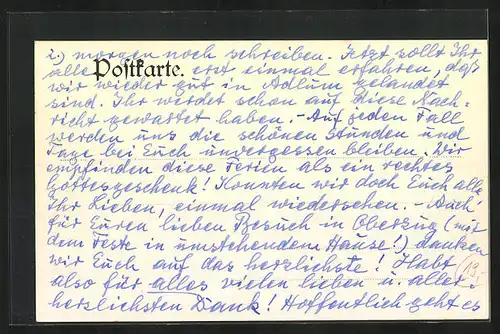 2.) morgen noch schreiben. Jetzt sollt Ihr
alle erst einmal erfahren, daß
Postkarte.
wir wieder gut in Adlum gelandet
sind. Ihr werdet schon auf diese Nach-
richt gewartet haben. - Auf jeden Fall
werden uns die schönen Stunden und
Tage bei Euch unvergessen bleiben. Wir
empfinden diese Ferien als ein rechtes
Gottesgeschenk! Konnten wir doch Euch alle,
Ihr Lieben, einmal wiedersehen. - Auch
für Euren lieben Besuch in (mit
dem Feste in umstehendem Hause!) danken
wir Euch auf das herzlichste! Habt
also für alles vielen lieben u. aller-
herzlichsten Dank! Hoffentlich geht es